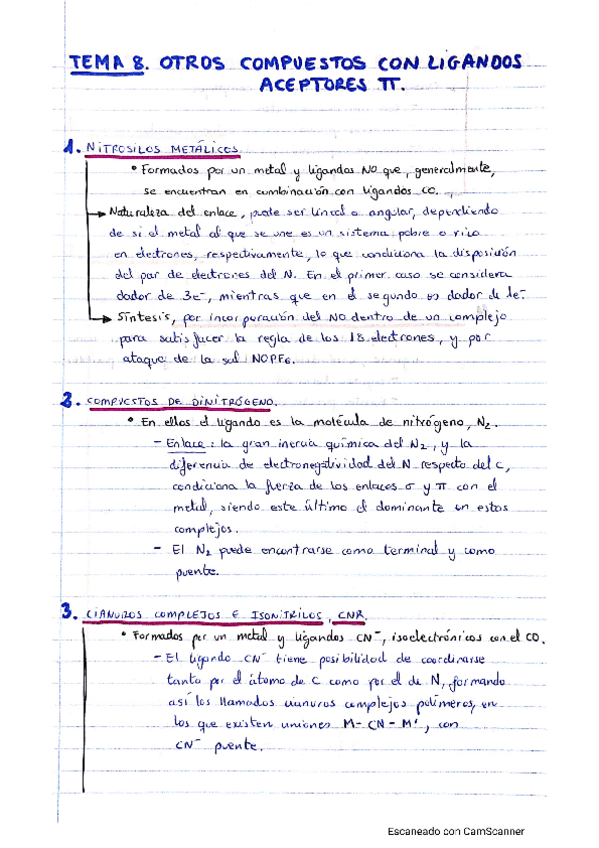 TEMA 8. OTROS COMPUESTOS CON LIGANDOS
ACEPTORES π.
1. NITROSILOS METÁLICOS
• Formados por un metal y ligandos NO que, generalmente,
se encuentran en combinación con ligandos CO.
→ Naturaleza del enlace, puede ser lineal o angular, dependiendo
de si el metal al que se une es un sistema pobre o rico
en electrones, respectivamente, lo que condiciona la disposición
del par de electrones del N. En el primer caso se considera
dador de 3e⁻, mientras que en el segundo es dador de 1e⁻.
→ Síntesis, por incorporación del NO dentro de un complejo
para satisfacer la regla de los 18 electrones, y por
ataque de la sal NOPF₆.
2. COMPUESTOS DE DINITRÓGENO.
• En ellos el ligando es la molécula de nitrógeno, N₂.
– Enlace: la gran inercia química del N₂, y la
diferencia de electronegatividad del N respecto del C,
condiciona la fuerza de los enlaces σ y π con el
metal, siendo este último el dominante en estos
complejos.
– El N₂ puede encontrarse como terminal y como
puente.
3. CIANUROS COMPLEJOS E ISONITRILOS, CNR.
• Formados por un metal y ligandos CN⁻, isoelectrónicos con el CO.
– El ligando CN⁻ tiene posibilidad de coordinarse
tanto por el átomo de C como por el de N, formando
así los llamados cianuros complejos polímeros, en
los que existen uniones M-CN-M', con
CN⁻ puente.
Escaneado con CamScanner